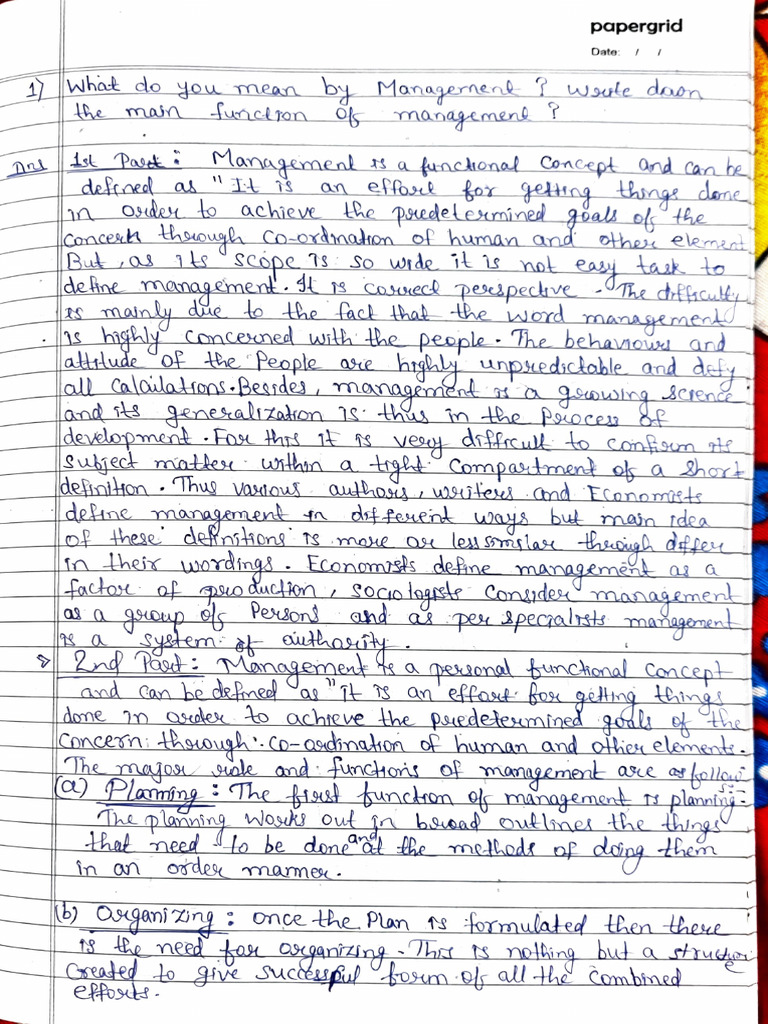 papergrid
Date: / /
1) What do you mean by Management ? Write down
the main function of management ?
Ans 1st Part : Management is a functional concept and can be
defined as "It is an effort for getting things done
in order to achieve the predetermined goals of the
concern through co-ordination of human and other element
But, as its scope is so wide it is not easy task to
define management. It is correct perspective. The difficulty
is mainly due to the fact that the word management
is highly concerned with the people. The behaviours and
attitude of the People are highly unpredictable and defy
all calculations. Besides, management is a growing science
and its generalization is thus in the process of
development. For this it is very difficult to confirm its
subject matter within a tight compartment of a short
definition. Thus various authors, writers and Economists
define management in different ways but main idea
of these definitions is more or less similar through differ
in their wordings. Economists define management as a
factor of production, sociologists consider management
as a group of Persons and as per specialists management
is a system of authority.
2nd Part : Management is a personal functional concept
and can be defined as "it is an effort for getting things
done in order to achieve the predetermined goals of the
concern through co-ordination of human and other elements.
The major role and functions of management are as follow
(a) Planning : The first function of management is planning.
The planning works out in broad outlines the things
that need to be done and at the methods of doing them
in an order manner.
(b) Organizing : once the Plan is formulated then there
is the need for organizing. This is nothing but a structure
created to give successful form of all the combined
efforts.